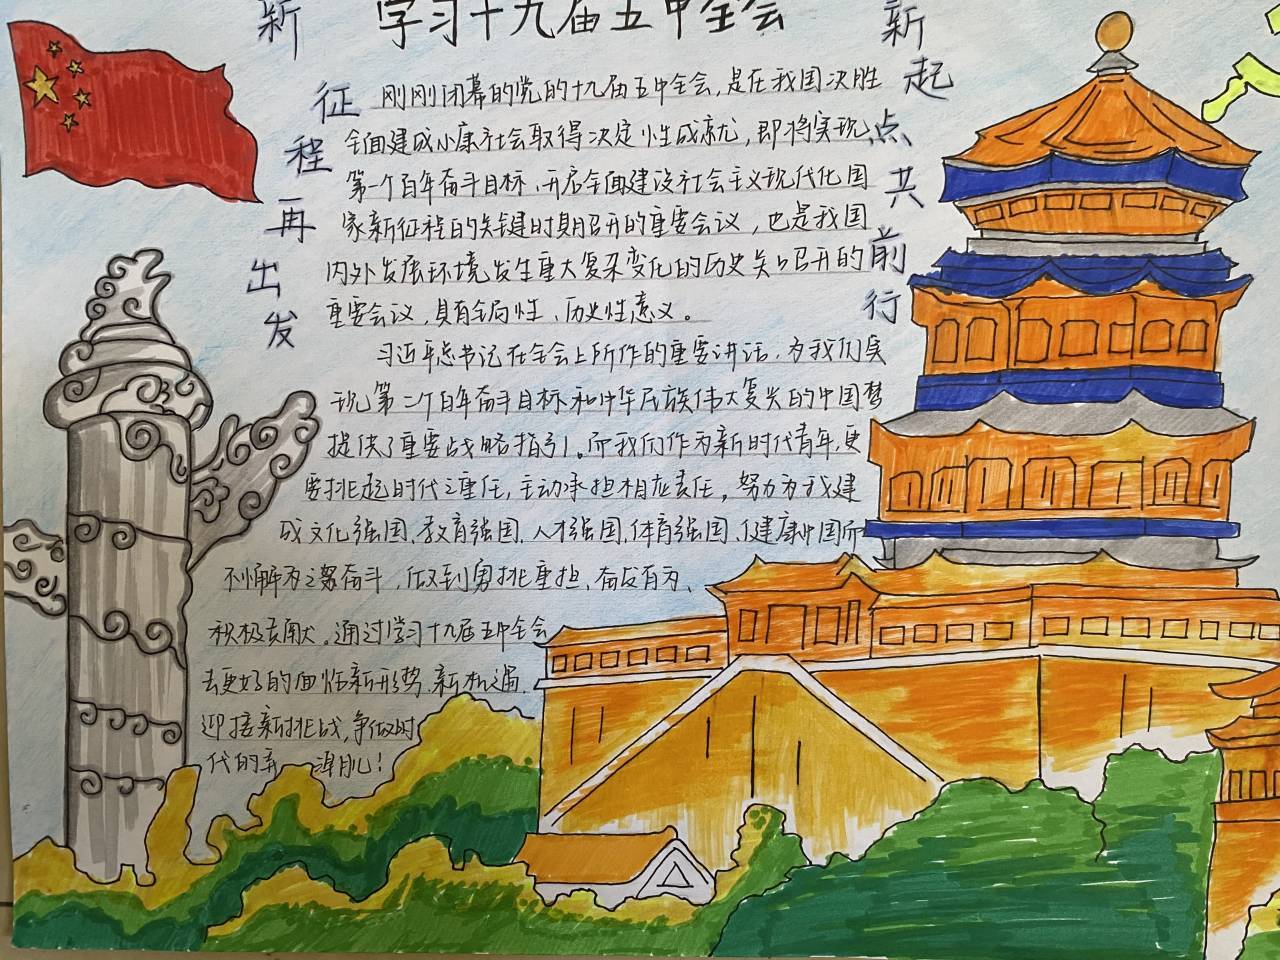 学习十九届五中全会
新征程再出发
新起点共前行
刚刚闭幕的党的十九届五中全会,是在我国决胜
全面建成小康社会取得决定性成就,即将实现
第一个百年奋斗目标、开启全面建设社会主义现代化国
家新征程的关键时期召开的重要会议,也是我国
内外发展环境发生重大复杂变化的历史关口召开的
重要会议,具有全局性、历史性意义。
习近平总书记在全会上所作的重要讲话,为我们实
现第二个百年奋斗目标和中华民族伟大复兴的中国梦
提供了重要战略指引。而我们作为新时代青年,更
要挑起时代之重任,主动承担相应责任。努力为我建
成文化强国、教育强国、人才强国、体育强国、健康中国而
不懈为之努奋斗,做到勇挑重担、奋发有为、
积极贡献。通过学习十九届五中全会
去更好的面临新形势、新机遇、
迎接新挑战,争做时
代的弄潮儿!